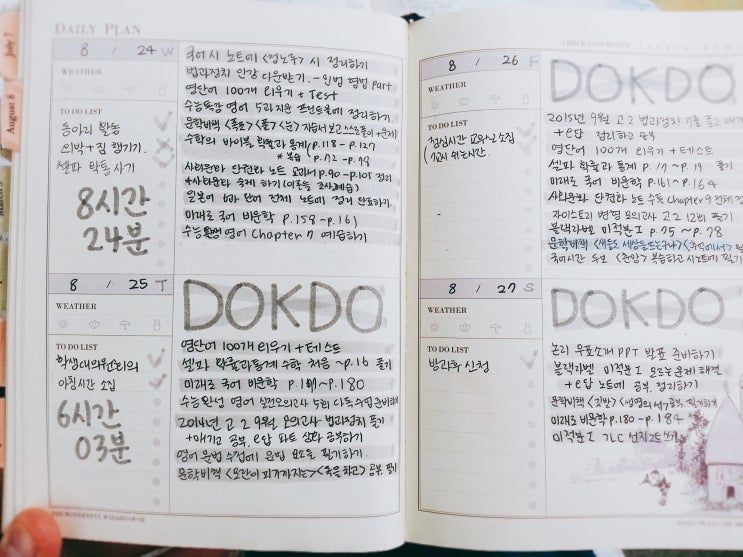 DAILY PLAN
July 7
August 8
8 / 24 W
WEATHER
8
TO DO LIST
동아리 활동
의박 + 짐 챙기기.
셀파 확통 사기
8시간
24분
국어 시 노트에 <정노우> 시 정리하기
법과정치 인강 다운받기. - 민법 형법 part
영단어 100개 외우기 + Test
수능특강 영어 5과 지문 프린트물에 정리하기.
수학의 바이블 확률과 통계 p.118 ~ p.127
* 복습
사회문화 단권화 노트 교과서 p.90 ~ p.105 정리
일본어 단어 전체 노트에 정리 완료하기.
미래로 국어 비문학 p.158 ~ p.161
수능완성 영어 Chapter 7 예습하기
8 / 25 T
WEATHER
8
TO DO LIST
학생대의원회의
아침시간 소집
6시간
03분
DOKDO
영단어 100개 외우기 + 테스트
셀파 확률과통계 수학 처음 ~ p.16 풀기
미래로 국어 비문학 ~ p.180
수능완성 영어 실전모의고사 5회
2014년 고2 9월 모의고사 법과정치 풀기
+ 매기고 공부.
영어 문법 수업에 문법 요소 필기하기.
문학비책 공부
THE WONDERFUL WIZARD OF OZ
CHECK THIS MONTH
8 / 26 F
WEATHER
8
TO DO LIST
점심시간 교무실 소집
7교시 쉬는시간.
DOKDO
2015년 9월 고2 법과정치 기출
정리하고 공부
영단어 100개 외우기 + 테스트
셀파 확률과 통계 p.17 ~ p.19 풀기
미래로 국어 비문학 p.161 ~ p.164
사회문화 단권화 노트 수특 Chapter 9 전체
자이스토리 모의고사 고2 12회 풀기
블랙라벨 미적분 I p.75 ~ p.78
문학비책
국어시간 복습하고 시 노트에 필기
8 / 27 S
WEATHER
8
TO DO LIST
방과후 신청
DOKDO
논리 우표소개 PPT 발표 준비하기
블랙라벨 미적분 I 모르는 문제 해결
노트에 공부. 정리하기
문학비책
미래로 비문학 p.180 ~ p.184
미적분 I